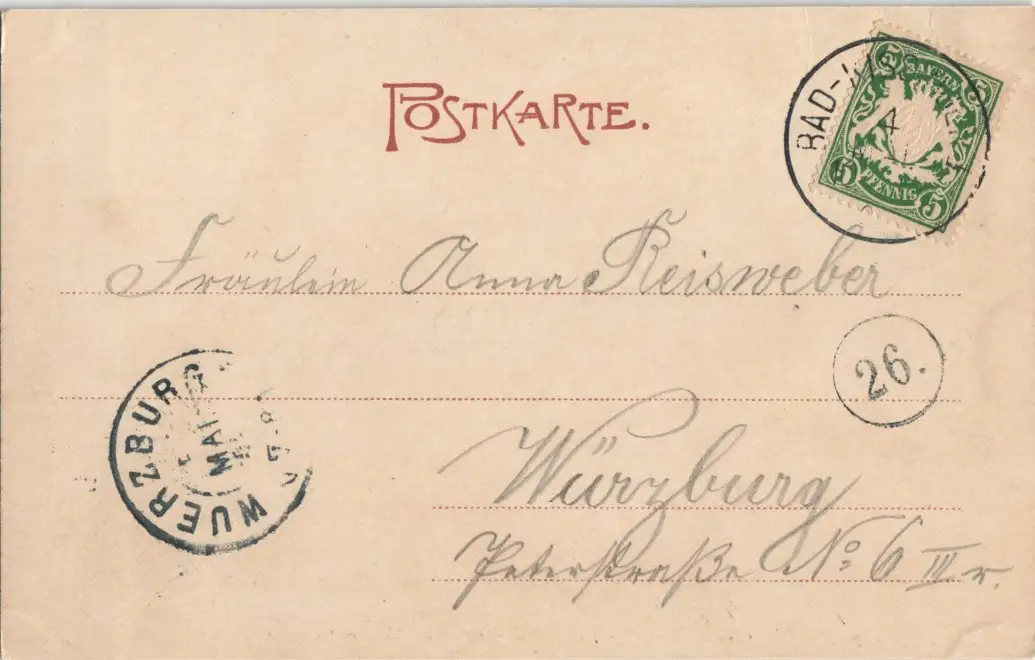 POSTKARTE.
BAYERN
5 5
5 PFENNIG 5
BAD-KISS
4
Fräulein Anna Reisweber
26.
WUERZBURG
MAI
7-8
Würzburg
Peterstraße No 6 III r.